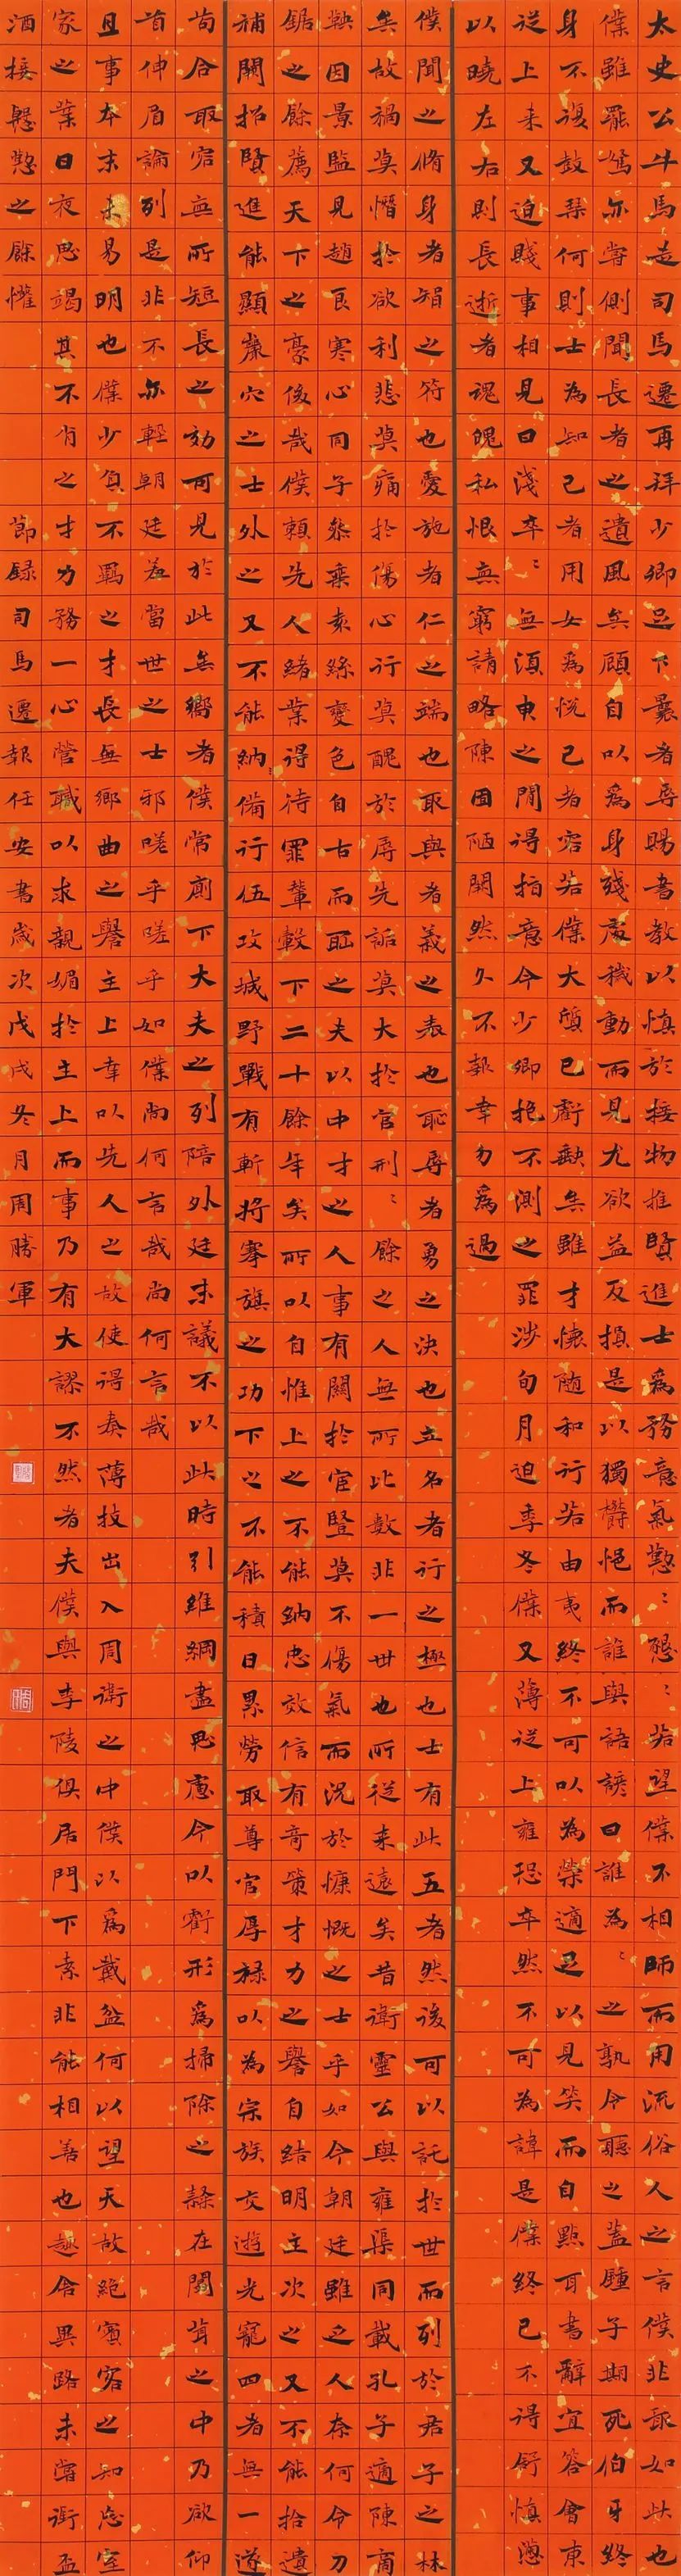 太史公牛馬走司馬遷再拜少卿足下曩者辱賜書教以慎於接物推賢進士爲務意氣懃〻懇〻若望僕不相師而用流俗人之言僕非敢如此也
僕雖罷駑亦嘗側聞長者之遺風矣顧自以爲身殘處穢動而見尤欲益反損是以獨欝悒而誰與語諺曰誰為〻之孰令聽之蓋鍾子期死伯牙終
身不復鼓琴何則士為知己者用女爲悅己者容若僕大質已虧缺矣雖才懷随和行若由夷終不可以為榮適足以見笑而自點耳書辭宜答會東
従上来又迫賤事相見日淺卒〻無須臾之間得指意今少卿抱不測之罪涉旬月迫季冬僕又薄従上雍恐卒然不可為諱是僕終已不得舒憤懣
以曉左右則長逝者魂魄私恨無窮請略陳固陋闕然久不報幸勿爲過
僕聞之脩身者智之符也愛施者仁之端也取與者義之表也恥辱者勇之決也立名者行之極也士有此五者然後可以託於世而列於君子之林
矣故禍莫憯於欲利悲莫痛於傷心行莫醜於辱先詬莫大於宮刑〻餘之人無所比數非一世也所従来遠矣昔衛靈公與雍渠同載孔子適陳商
鞅因景監見趙良寒心同子參乘袁絲變色自古而恥之夫以中才之人事有關於宦豎莫不傷氣而況於慷慨之士乎如今朝廷雖乏人奈何令刀
鋸之餘薦天下之豪俊哉僕頼先人緒業得待罪輦轂下二十餘年矣所以自惟上之不能納忠效信有奇策才力之譽自結明主次之又不能拾遺
補闕招賢進能顯巖穴之士外之又不能納備行伍攻城野戰有斬將搴旗之功下之不能積日累勞取尊官厚祿以為宗族交遊光寵四者無一遂
苟合取容無所短長之効可見於此矣嚮者僕常廁下大夫之列陪外廷末議不以此時引維綱盡思慮今以虧形爲掃除之隸在闒茸之中乃欲仰
首伸眉論列是非不亦輕朝廷羞當世之士邪嗟乎嗟乎如僕尚何言哉尚何言哉
且事本末未易明也僕少負不羈之才長無鄉曲之譽主上幸以先人之故使得奏薄技出入周衛之中僕以爲戴盆何以望天故絕賓客之知忘室
家之業日夜思竭其不肖之才力務一心營職以求親媚於主上而事乃有大謬不然者夫僕與李陵俱居門下素非能相善也趣舍異路未嘗銜盃
酒接慇懃之餘懽 節録司馬遷報任安書歲次戊戌冬月周勝軍